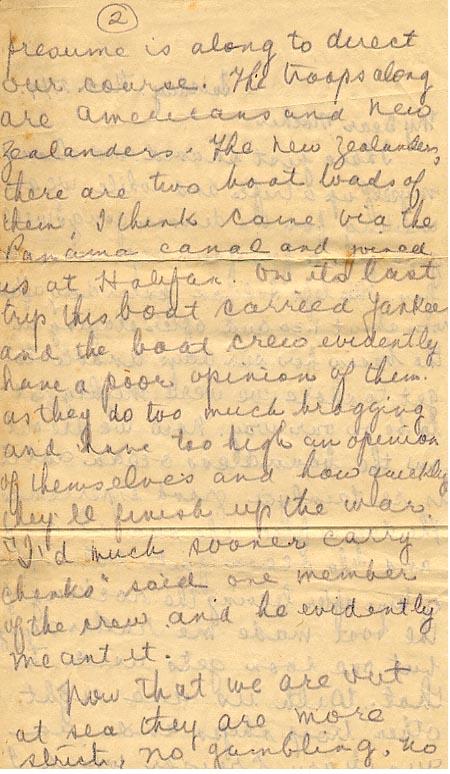 2
presume is along to direct
our course. The troops along
are Americans and New
Zealanders. The New Zealanders,
there are two boat loads of
them, I think came via the
Panama canal and joined
us at Halifax. On its last
trip this boat carried Yankee
and the boat crew evidently
have a poor opinion of them.
as they do too much bragging
and have too high an opinion
of themselves and how quickly
they'll finish up the war.
"I'd much sooner carry
chinks" said one member
of the crew and he evidently
meant it.
Now that we are out
at sea they are more
strict, no gambling, no